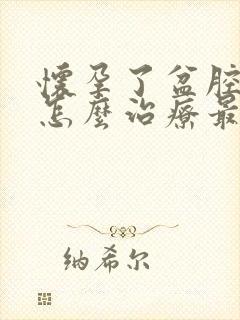 懷孕了盆腔
怎麼治療最
纳希尔